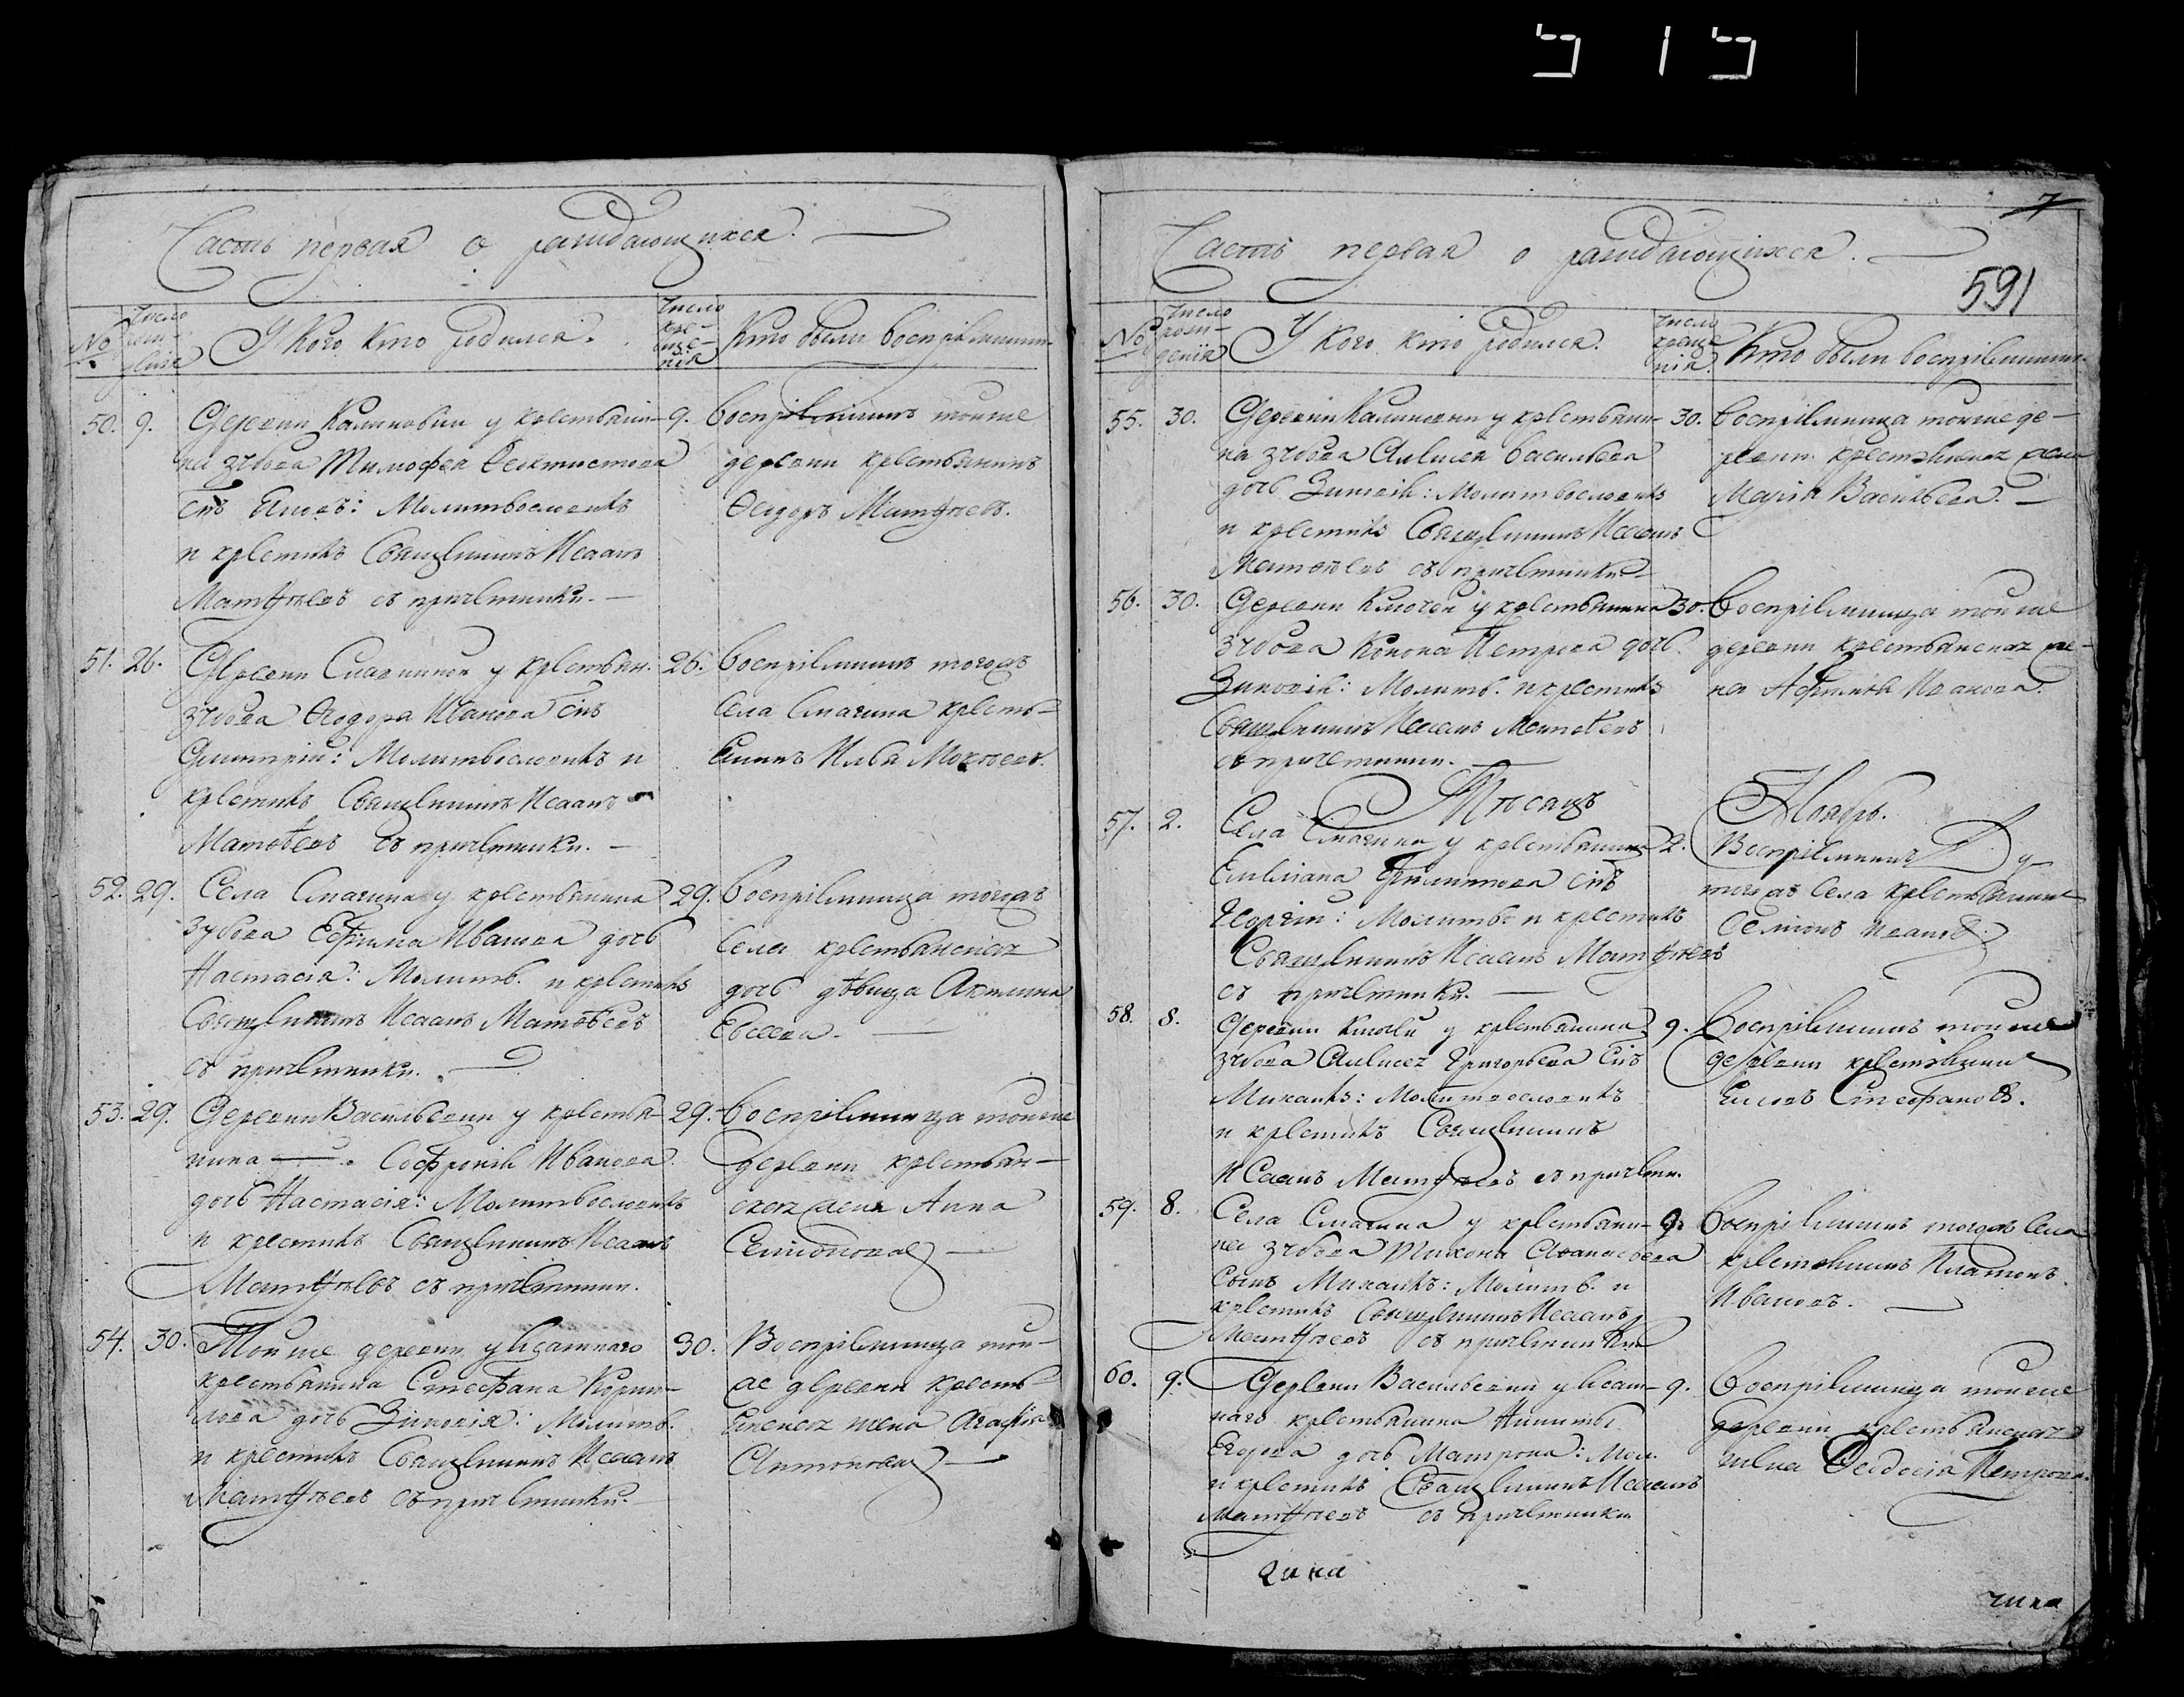 Часть первая о раждающихся.
№
Число рож- денія
У Кого кто родился.
Число кре- ще- нія
Кто были воспріемники
50. 9.
Деревни Калиновки у крестьяни-
на зубова Тимофея Феоктистова
снъ Іяковъ: Молитвословилъ
и крестилъ Священникъ Исаакъ
Матѳѣевъ съ причетники.
9.
воспріемникъ тоиже
деревни крестьянинъ
Ѳедоръ Матѳѣевъ.
51. 26.
Деревни у крестьян.
зубова Ѳеодора Иванова снъ
Димитрій: Молитвословилъ и
крестилъ Священникъ Исаакъ
Матѳѣевъ съ причетники.
26.
воспріемникъ тогожъ
села Смагина кресть-
янинъ Илья Мокѣевъ.
52. 29.
Села Смагина у крестьянина
Зубова Ефима Иванова дочь
Настасія: Молитв. и крестилъ
Священникъ Исаакъ Матѳѣевъ
съ причетники.
29.
воспріемница тогожъ
села крестьянская
дочь дѣвица Акилина
Евсеева.
53. 29.
Деревни Васильевки у крестья-
нина Софронія Иванова
дочь Настасія: Молитвословилъ
и крестилъ Священникъ Исаакъ
Матѳѣевъ съ причетники.
29.
воспріемница тоиже
деревни крестьян-
ская жена Анна
Семіонова
54. 30.
Тоиже деревни у
крестьянина Стефана Корни-
лова дочь Зиновія: Молитв.
и крестилъ Священникъ Исаакъ
Матѳѣевъ съ причетники.
30.
Воспріемница тои-
же деревни кресть
янская жена Агафія
Антонова
7
Часть первая о раждающихся.
591
№
Число рож- денія
У кого кто родился.
Число креще нія.
Кто были воспріемники
55. 30.
Деревни Калиновки у крестьяни-
на зубова Алексея васильева
дочь Зиновія: Молитвословилъ
и крестилъ Священникъ Исаакъ
Матѳѣевъ съ причетники
30.
воспріемница тоиже де-
ревни крестьянская жена
Марія Васильева.
56. 30.
Деревни Ключей у крестьянина
зубова Конона Петрова дочь
Зиновія: Молитв. и крестилъ
Священникъ Исаакъ Матѳѣевъ
съ причетники.
30.
Воспріемница тоиже
деревни крестьянская же-
на Афимія Иванова.
Мѣсяцъ
Ноябрь.
57. 2.
Села Смагина у крестьянина
Емелиана Филиппова снъ
Георгій: Молитв. и крестилъ
Священникъ Исаакъ Матѳѣевъ
съ причетники.
2.
Воспріемникъ
тогожъ села крестьянинъ
Семіонъ Ивановъ
58. 8.
Деревни Ключей у крестьянина
зубова Алексея Григорьева снъ
Михаилъ: Молитвословилъ
и крестилъ Священникъ
Исаакъ Матѳѣевъ съ причетни.
9.
Воспріемникъ тоиже
деревни крестьянинъ
Стефановъ.
59. 8.
Села Смагина у крестьяни-
на зубова Тихона Афанасьева
сынъ Михаилъ: Молитв. и
крестилъ Священникъ Исаакъ
Матѳѣевъ съ причетники
9.
Воспріемникъ тогожъ села
крестьянинъ Платонъ
Ивановъ.
60. 9.
Деревни Васильевки у
крестьянина Никиты
Егорова дочь Матрона: Мол.
и крестилъ Священникъ Исаакъ
Матѳѣевъ съ причетники
9.
воспріемница тоиже
деревни крестьянская
жена Феодосія Петрова.